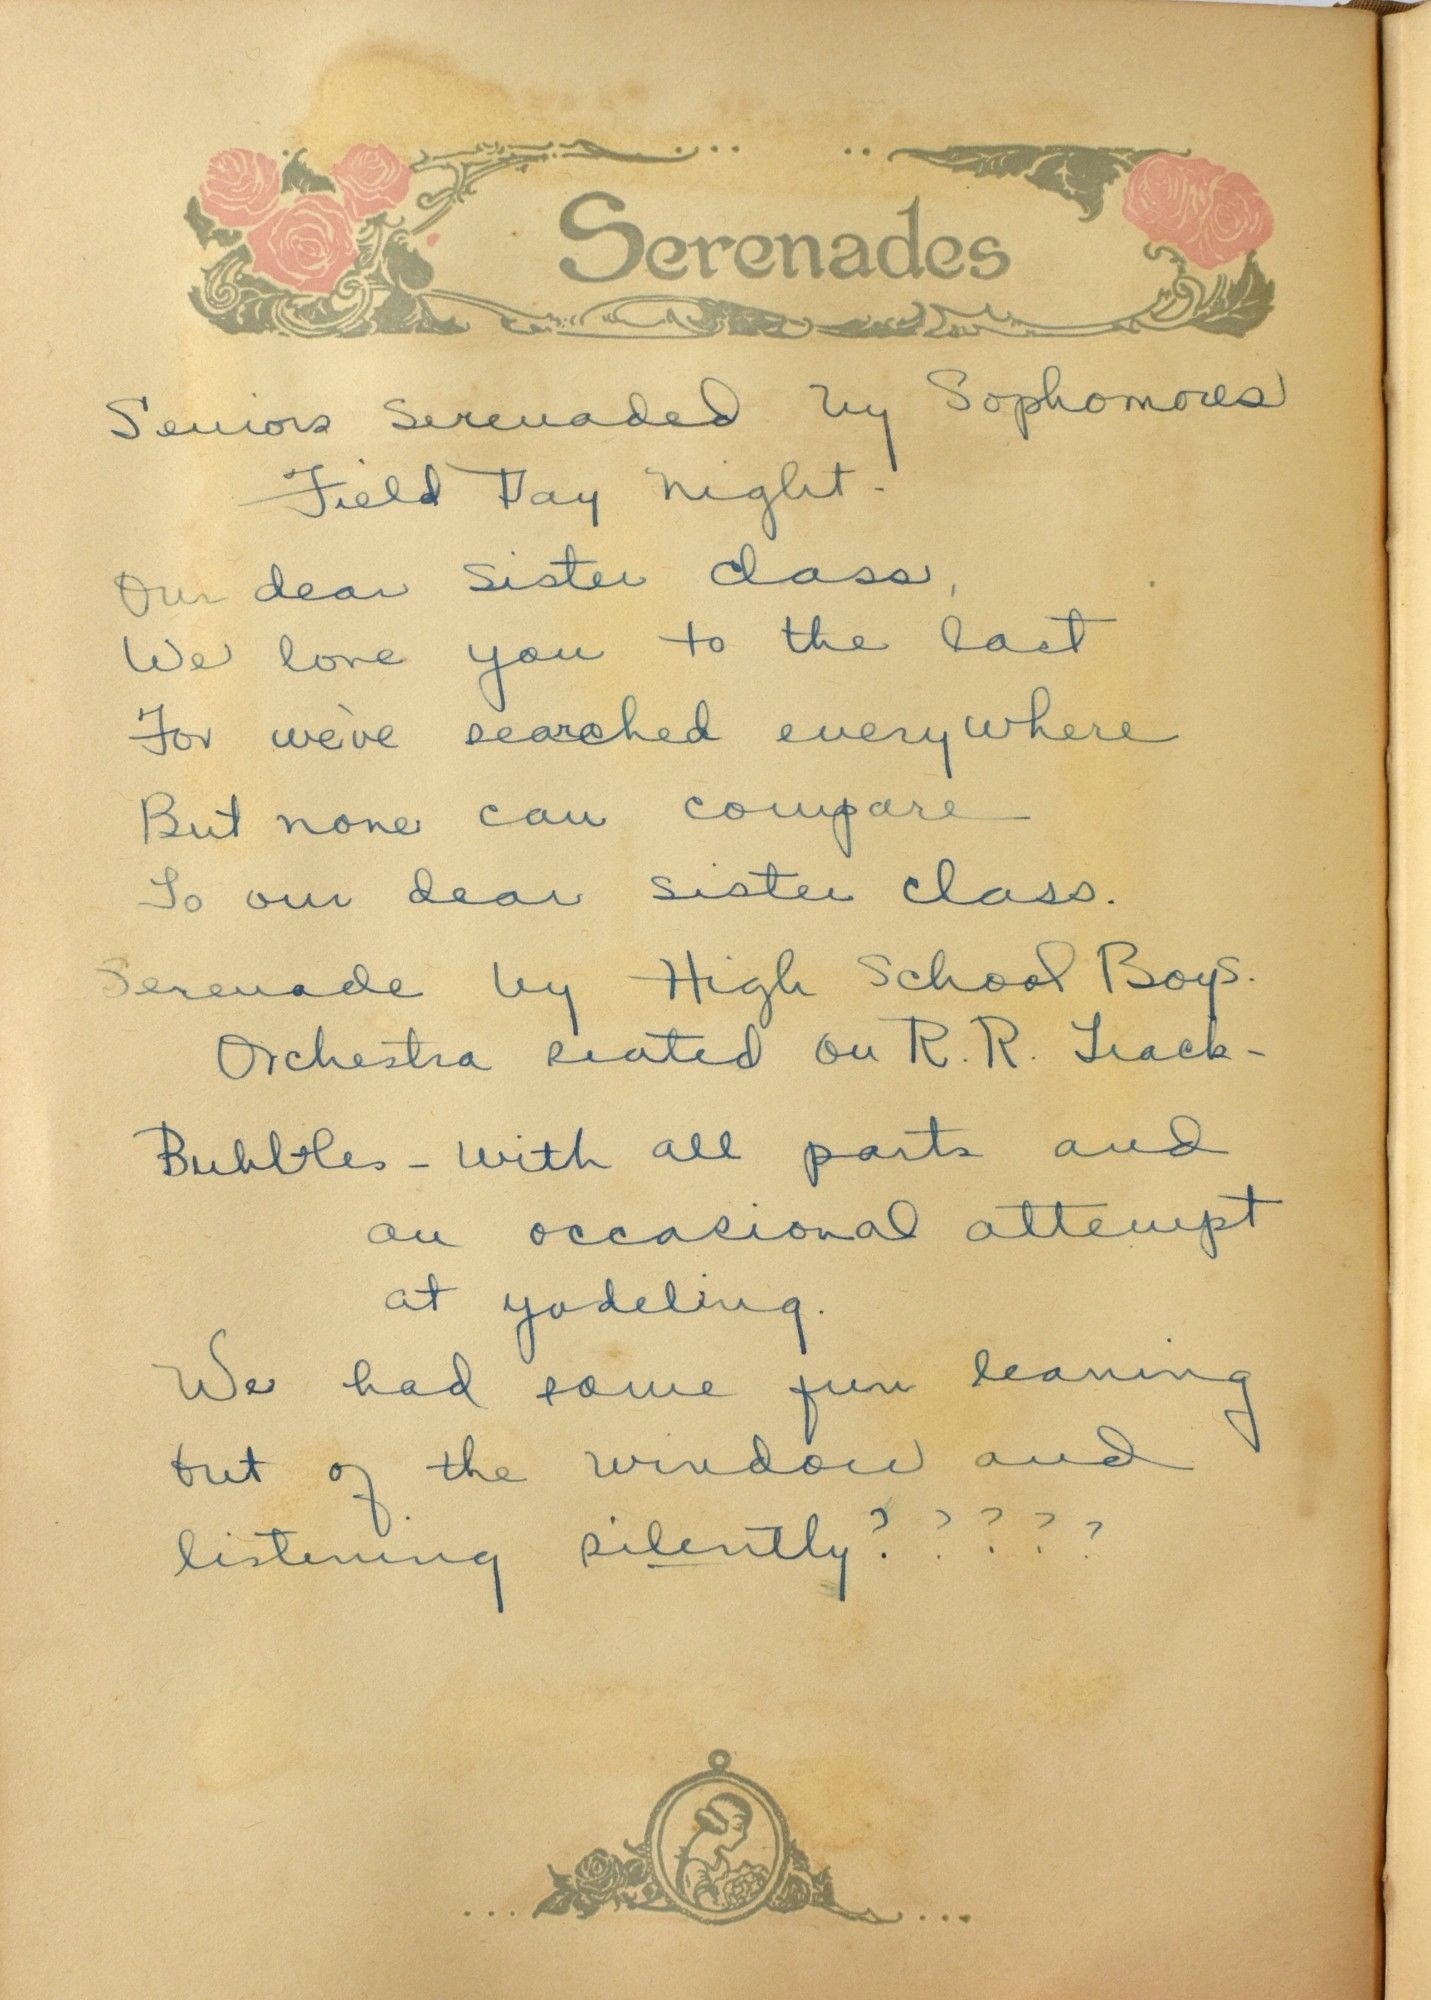 Serenades
Seniors serenaded by Sophomores
Field Day Night -
Our dear sister class,
We love you to the last
For we've searched everywhere
But none can compare
To our dear sister class.
Serenade by High School Boys.
Orchestra seated on R.R. Track -
Bubbles - with all parts and
an occasional attempt
at yodeling.
We had some fun leaning
out of the window and
listening silently? ? ? ? ?